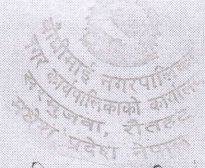 बौधीमाई नगरपालिका
नगर कार्यपालिकाको कार्यालय
सरमुजवा, रौतहट
मधेश प्रदेश नेपाल